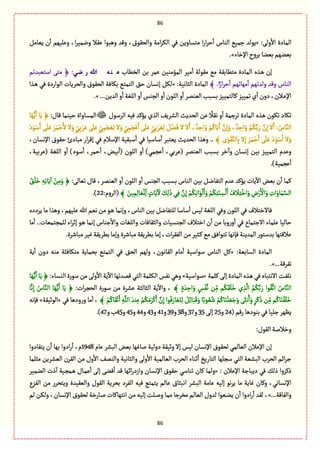 86
المادة الأولى: «يولد جميع الناس أحرارا متساوين في الكرامة والحقوق، وقد وهبوا عقلا وضميرا، وعليهم أن يعامل
بعضهم بعضا بروح الإخاء».
إن هذه المادة متطابقة مع مقولة أمير المؤمنين عمر بن الخطاب ﴿ متى استعبدتم
الناس وقد ولدتهم أمهاتهم أحرارًا. ﴾ المادة الثانية: «لكل إنسان حق التمتع بكافة الحقوق والحريات الواردة في هذا
الإعلان، دون أي تمييز كالتمييز بسبب العنصر أو اللون أو الجنس أو اللغة أو الدين... ».
تكاد تكون هذه المادة ترجمة أو نقلًا عن الحديث الشريف الذي يؤكد فيه الرسول ﷺ المساواة حينما قال: ﴿ يَا أَيُّهَا
النَّاسُ: أَلَا إِنَّ رَبَّكُمْ وَاحِدٌ ، وَإِنَّ أَبَاكُمْ وَاحِدٌ ، أَلَا لَا فَضْلَ لِعَرَبِيٍّ عَلَى عَجَمِيٍّ وَلَا لِعَجَمِيٍّ عَلَى عَرَبِيٍّ وَلَا لِأَحْمَرَ عَلَى أَسْوَدَ وَلَا
أَسْوَدَ عَلَى أَحْمَرَ إِلَّا بِالتَّقْوَى ﴾ .. وهذا الحديث يعتبر أساسيا في أسبقية الإسلام في إقرار مبادئ حقوق الإنسان ،
وعدم التمييز بين إنسان وآخر بسبب العنصر (عربي ، أعجمي) أو اللون (أبيض ، أحمر ، أسود) أو اللغة (عربية ،
أعجمية).
كما أن بعض الآيات يؤكد عدم التفاضل بين الناس بسبب الجنس أو اللون أو العنصر ، قال تعالى: ﴿ وَمِنْ آيَاتِهِ خَلْقُ
السَّمَاوَاتِ وَالْأَرْضِ وَاخْتِلَافُ أَلْسِنَتِكُمْ وَأَلْوَانِكُمْ إِنَّ فِي ذَٰلِكَ لَآيَاتٍ لِلْعَالِمِينَ ﴾ (الروم:22).
فالاختلاف في اللون وفي اللغة ليس أساسا للتفاضل بين الناس ، وإنما هو من نعم الله عليهم ، وهذا ما يردده
حاليا علماء الاجتماع في أوروبا من أن اختلاف الجنسيات والثقافات واللغات والأجناس إنما هو إثراء للمجتمعات.. أما
علاقتها بدستور المدينة فإنها تتوافق مع كثير من الفقرات ، إما بطريقة مباشرة وإما بطريقة غير مباشرة.
المادة السابعة: «كل الناس سواسية أمام القانون ، ولهم الحق في التمتع بحماية متكافئة منه دون أية
تفرقة...».
تلفت الانتباه في هذه المادة إلى كلمة «سواسية» وهي نفس الكلمة التي قصدتها الآية الأولى من سورة النساء: ﴿ يَا أَيُّهَا
النَّاسُ اتَّقُوا رَبَّكُمُ الَّذِي خَلَقَكُمْ مِنْ نَفْسٍ وَاحِدَةٍ ﴾ ، والآية الثالثة عشرة من سورة الحجرات: ﴿ يَا أَيُّهَا النَّاسُ إِنَّا
خَلَقْنَاكُمْ مِنْ ذَكَرٍ وَأُنْثَى وَجَعَلْنَاكُمْ شُعُوبًا وَقَبَائِلَ لِتَعَارَفُوا إِنَّ أَكْرَمَكُمْ عِنْدَ اللَّهِ أَتْقَاكُمْ ﴾ ، أما ورودها في «الوثيقة» فإنه
يظهر جليا في بنودها رقم (24 و25 إلى 35 و37 و38 و39 و41 و43 و44 و45 و46 و47).
وخلاصة القول:
إن الإعلان العالمي لحقوق الإنسان ليس إلا وثيقة دولية صاغها بعض البشر عام 1948م ، أرادوا بها أن يتفادوا
جرائم الحرب البشعة التي سجلها التاريخ أثناء الحرب العالمية الأولى والثانية والنصف الأول من القرن العشرين مثلما
ذكروا ذلك في ديباجة الإعلان : «ولما كان تناسي حقوق الإنسان وازدرائها قد أفضى إلى أعمال همجية آذت الضمير
الإنساني ، وكان غاية ما يرنو إليه عامة البشر انبثاق عالم يتمتع فيه الفرد بحرية القول والعقيدة ويتحرر من الفزع
والفاقة...» ، لقد أرادوا أن يضعوا لدول العالم مخرجا مما وصلت إليه من انتهاكات صارخة لحقوق الإنسان ، ولكن لم
86